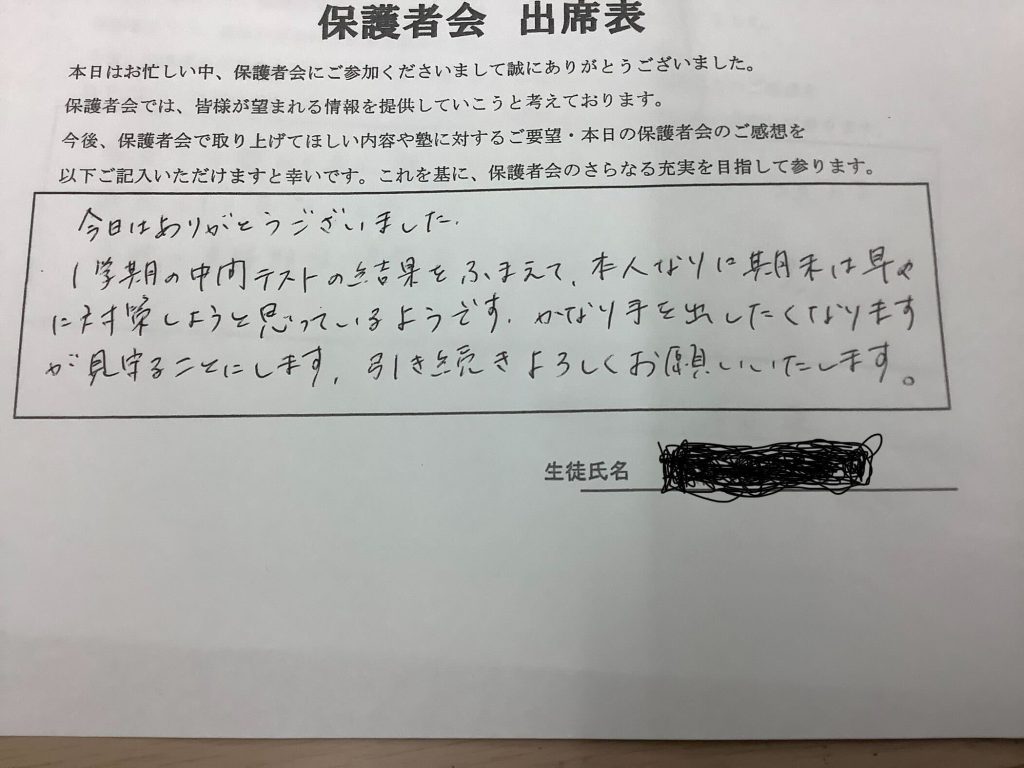 保護者会 出席表
本日はお忙しい中、保護者会にご参加くださいまして誠にありがとうございました。
保護者会では、皆様が望まれる情報を提供していこうと考えております。
今後、保護者会で取り上げてほしい内容や塾に対するご要望・本日の保護者会のご感想を
以下ご記入いただけますと幸いです。これを基に、保護者会のさらなる充実を目指して参ります。
今日はありがとうございました.
1学期の中間テストの結果をふまえて、本人なりに期末は早々
に対策しようと思っているようです. かなり手を出したくなります
が見守ることにします. 引き続きよろしくお願いいたします。
生徒氏名